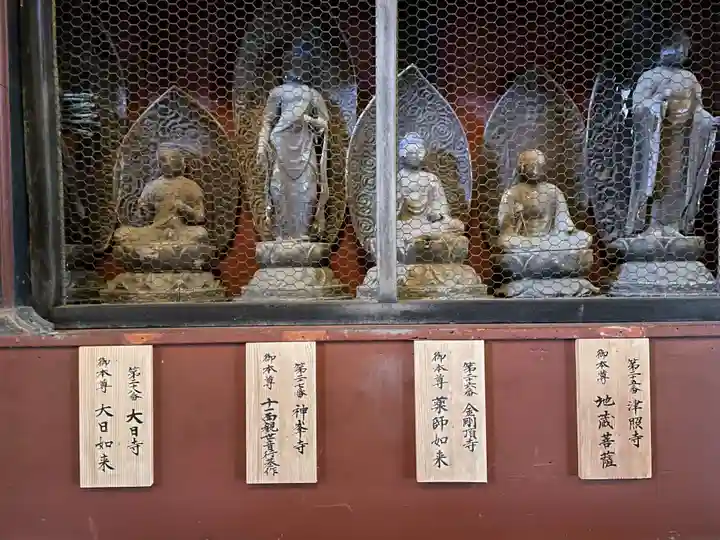 第二十五番 津照寺
御本尊 地蔵菩薩
第二十六番 金剛頂寺
御本尊 薬師如来
第二十七番 神峯寺
御本尊 十一面観世音行基作
第二十八番 大日寺
御本尊 大日如来